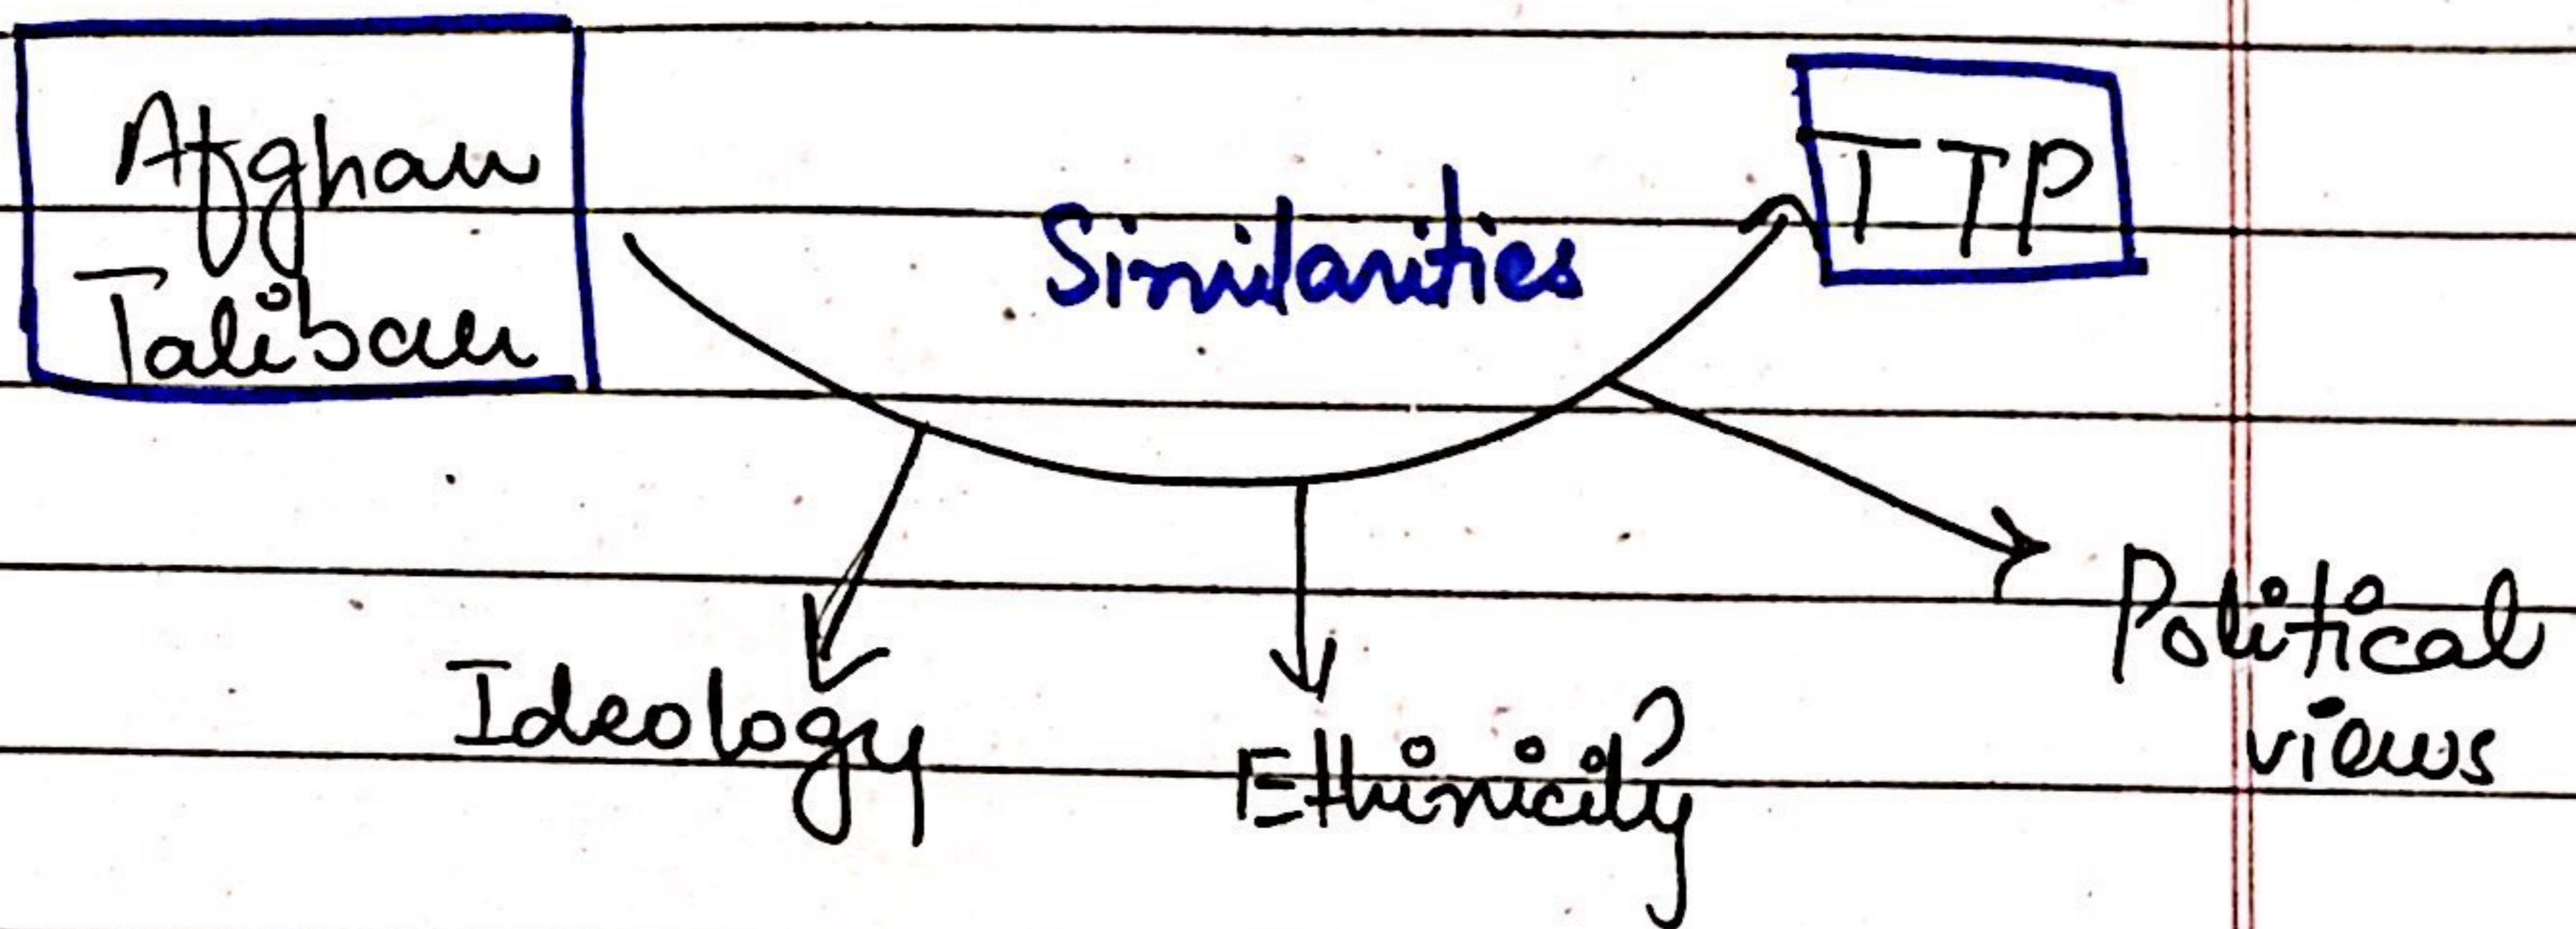 Afghan
Taliban
Similarities
TTP
Ideology
Ethinicity
Political
views